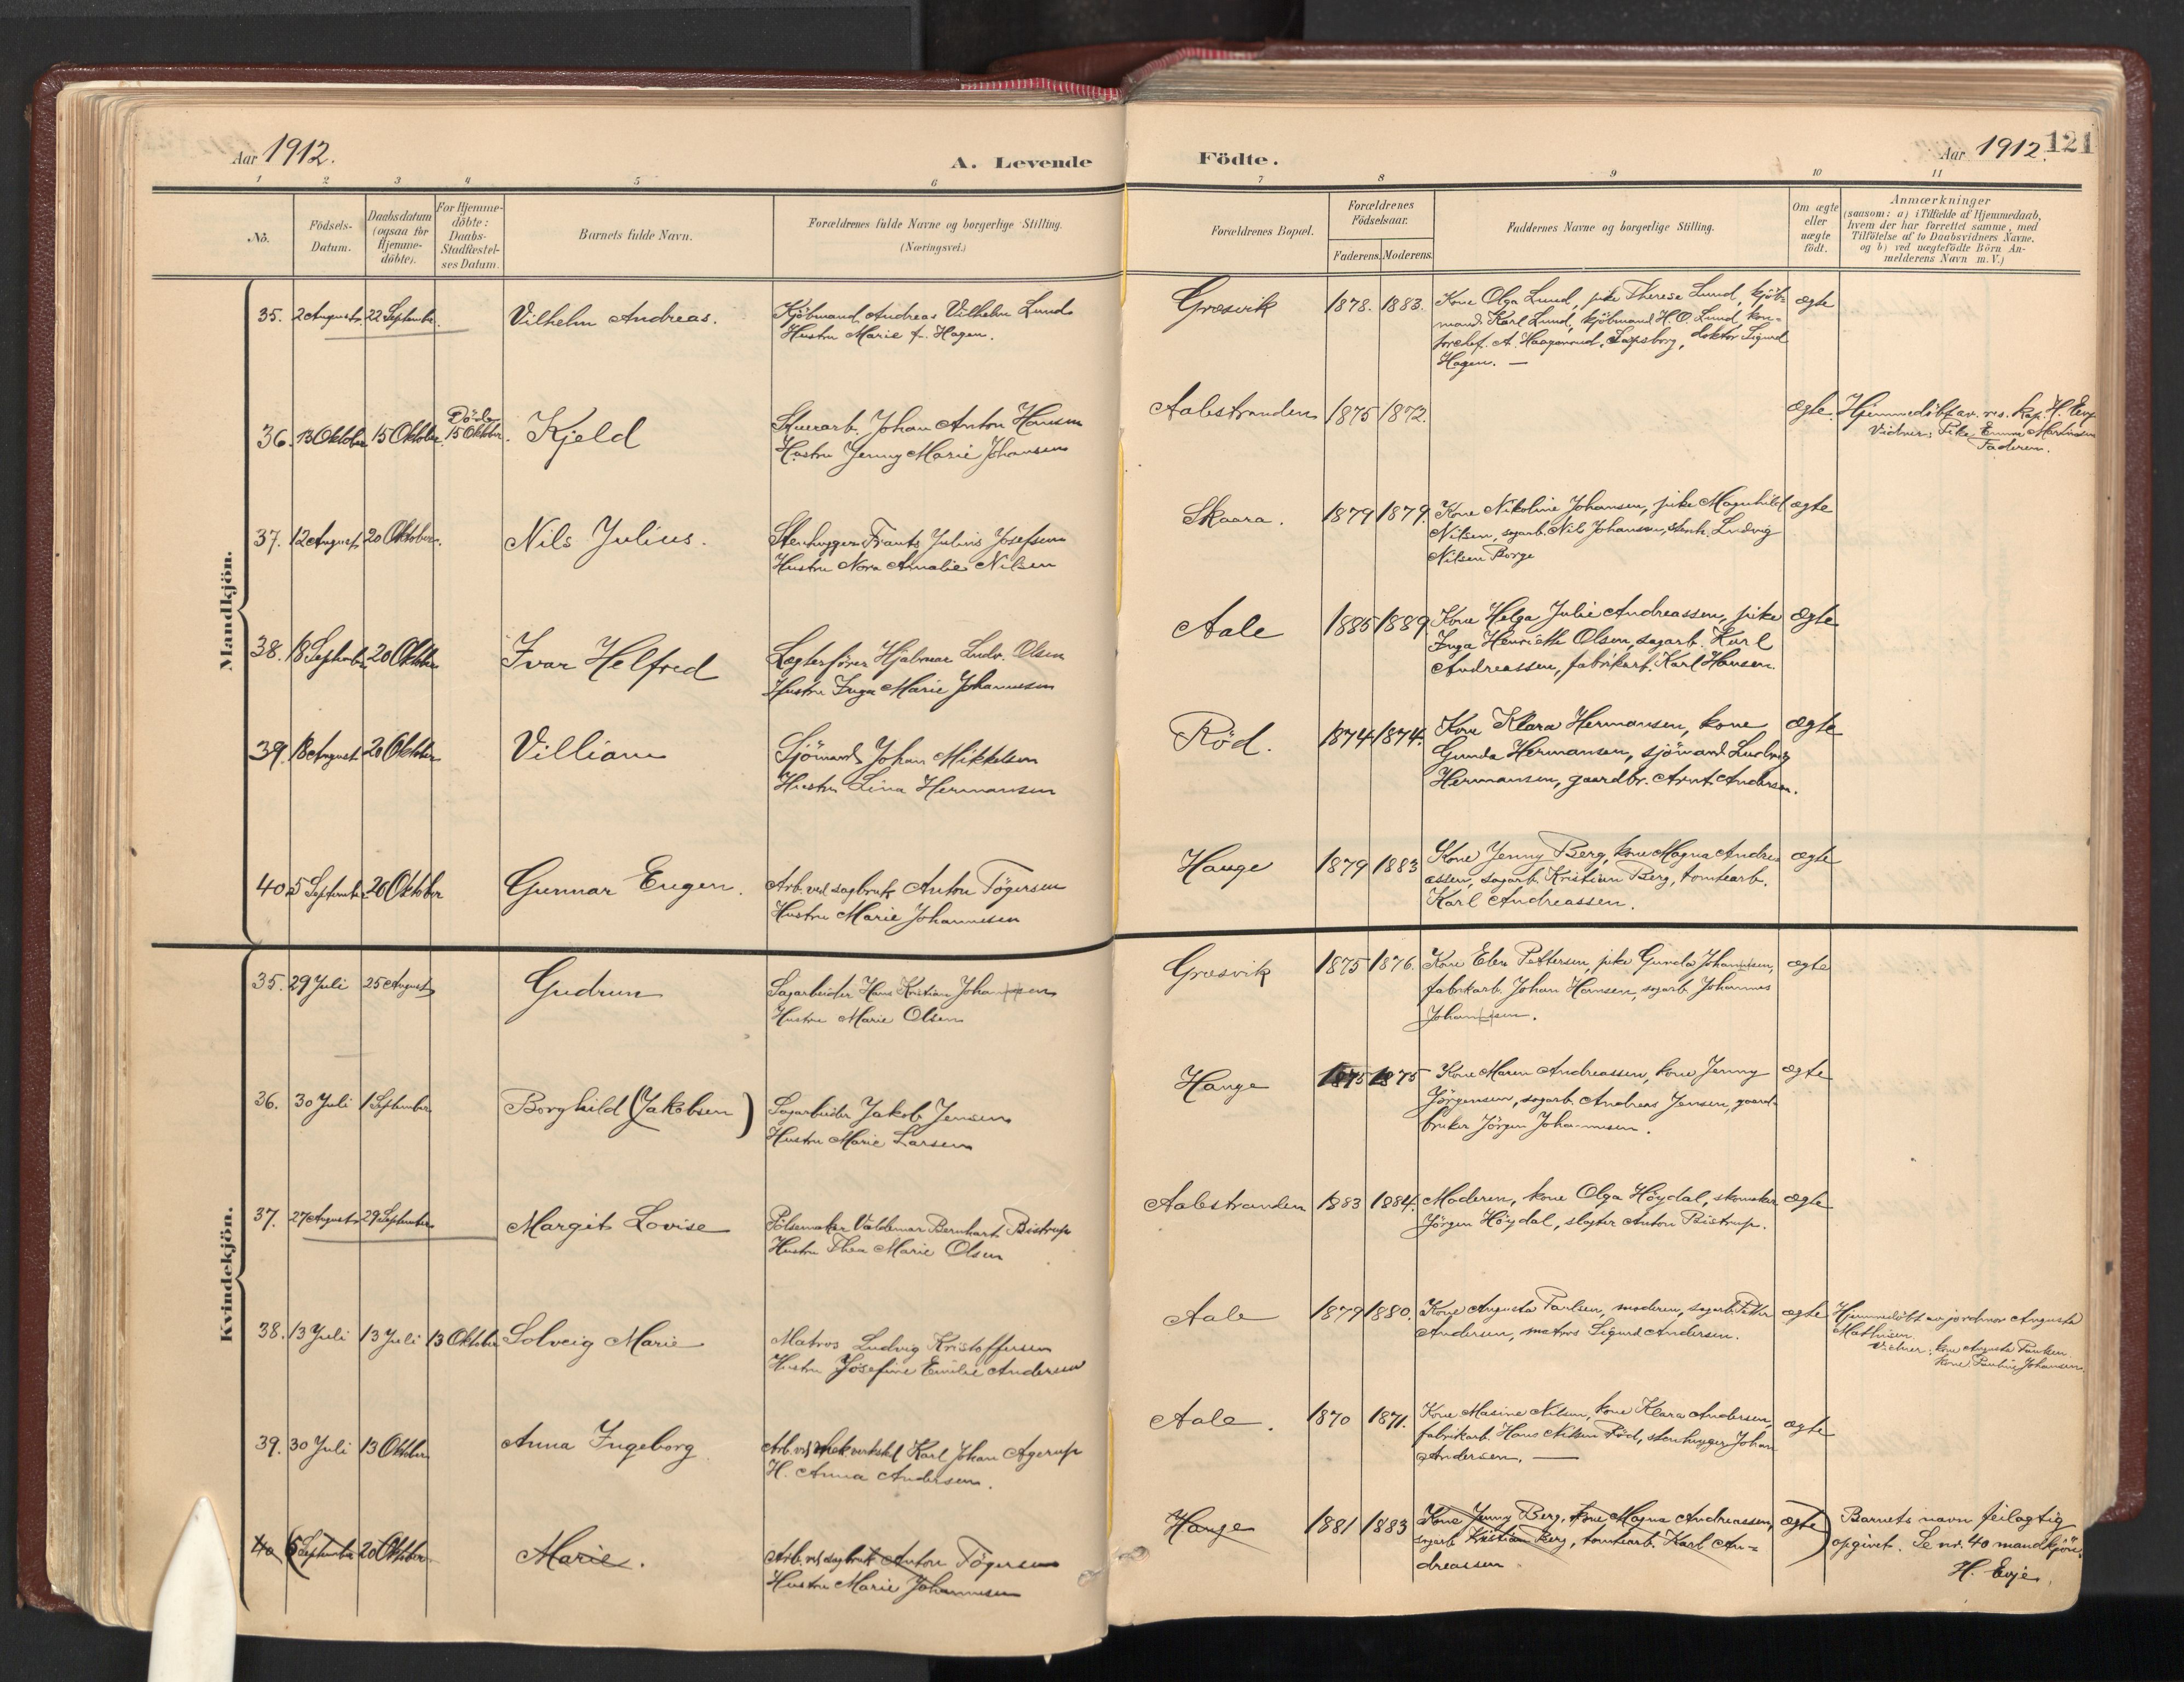 Aar 1912.
A. Levende
Födte.
Aar 1912.
121
1 2 3 4 5 6 7 8 9 10 11
No.
Födsels-
Datum.
Daabsdatum
(ogsaa for
Hjemme-
döbte).
For Hjemme-
döbte:
Daabs-
Stadfæstel-
ses Datum.
Barnets fulde Navn.
Forældrenes fulde Navne og borgerlige Stilling.
(Næringsvei.)
Forældrenes Bopæl.
Forældrenes
Födselsaar.
Faderens. Moderens.
Faddernes Navne og borgerlige Stilling.
Om ægte
eller
uægte
födt.
Anmærkninger
(saasom: a) i Tilfælde af Hjemmedaab,
hvem der har forrettet samme, med
Tilföielse af to Daabsvidners Navne,
og b) ved uægtefödte Börn An-
melderens Navn m. V.)
Mandkjön.
35. 2 August 22 September Vilhelm Andreas.
Kjöbmand Andreas Vilhelm Lund
Hustru Marie f. Hagen.
Græsvik 1878. 1883.
Kone Olga Lund, pike Therese Lund, kjöb-
mand Karl Lund, kjöbmand H. O. Lund, kon-
torchef A. Haagensrud, Sarpsborg, doktor Sigurd
Hagen. —
ægte
36. 13 Oktober 15 Oktober
Död
15 Oktober.
Kjeld
Stuerarb. Johan Anton Hansen
Hustru Jenny Marie Johansen
Aalestranden 1875 1872.
ægte.
Hjemmedöbt av res. kap. H. Evje
Vidner: Pike Emma Martinsen
Faderen.
37. 12 August 20 Oktober. Nils Julius.
Stenhugger Frants Julius Josefsen
Hustru Nora Amalie Nilsen
Skaara. 1879 1879.
Kone Nikoline Johansen, pike Magnhild
Nilsen, sagarb. Nils Johansen, stenh. Ludvig
Nilsen Borge
ægte
38. 18 September 20 Oktober Ivar Helfred
Lægterförer Hjalmar Ludv. Olsen
Hustru Inga Marie Johannessen
Aale 1885 1889
Kone Helga Julie Andreassen, pike
Inga Henriette Olsen, sagarb. Karl
Andreassen, fabrikarb. Karl Hansen.
ægte
39. 18 August 20 Oktober Villiam
Sjömand Johan Mikkelsen
Hustru Lina Hermansen
Röd. 1874 1874.
Kone Klara Hermansen, kone
Gunda Hermansen, sjömand Ludvig
Hermansen, gaardbr. Arnt Andersen.
ægte
40. 5 September 20 Oktober Gunnar Eugen.
Arb. ved sagbruk Anton Tögersen
Hustru Marie Johannesen
Hauge 1879 1883
Kone Jenny Berg, kone Magna Andre-
assen, sagarb. Kristian Berg, tomtearb.
Karl Andreassen.
ægte
Kvindekjön.
35. 29 Juli 25 August Gudrun
Sagarbeider Hans Kristian Johansen
Hustru Marie Olsen
Græsvik 1875 1876.
Kone Elen Pettersen, pike Gunda Johansen,
fabrikarb. Johan Hansen, sagarb. Johannes
Johansen.
ægte
36. 30 Juli 1 September Borghild (Jakobsen)
Sagarbeider Jakob Jensen
Hustru Marie Larsen
Hauge 1875 1875
Kone Maren Andreassen, kone Jenny
Jörgensen, sagarb. Andreas Jensen, gaard-
bruker Jörgen Johannesen.
ægte
37. 27 August 29 September Margit Lovise
Pölsemaker Valdemar Bernhart Bistrup
Hustru Thea Marie Olsen
Aalestranden 1883 1884.
Moderen, kone Olga Höydal, skomaker
Jörgen Höydal, slagter Anton Bistrup.
ægte
38. 13 Juli 13 Juli 13 Oktober Solveig Marie
Matros Ludvig Kristoffersen
Hustru Josefine Emilie Andersen
Aale 1879 1880.
Kone Augusta Paulsen, moderen, sagarb. Petter
Andersen, matros Sigurd Andersen.
ægte
Hjemmedöbt av jordmor Augusta
Mathisen.
Vidner: kone Augusta Paulsen.
kone Pauline Johansen.
39. 30 Juli 13 Oktober Anna Ingeborg
Arb. ved mek. verksted Karl Johan Agerup
H. Anna Andersen.
Aale. 1870 1871.
Kone Masine Nilsen, kone Klara Andersen,
fabrikarb. Hans Nilsen Röd, stenhugger Johan
Andersen. —
ægte
40 (5 September 20 Oktober Marie.
Arb. ved sagbruk Anton Tögersen
Hustru Marie Johannesen
Hauge 1881 1883
Kone Jenny Berg, kone Magna Andreassen,
sagarb. Kristian Berg, tomtearb. Karl An-
dreassen
ægte)
Barnets navn feilagtig
opgivet. Se nr. 40 mandkjön.
H. Evje.